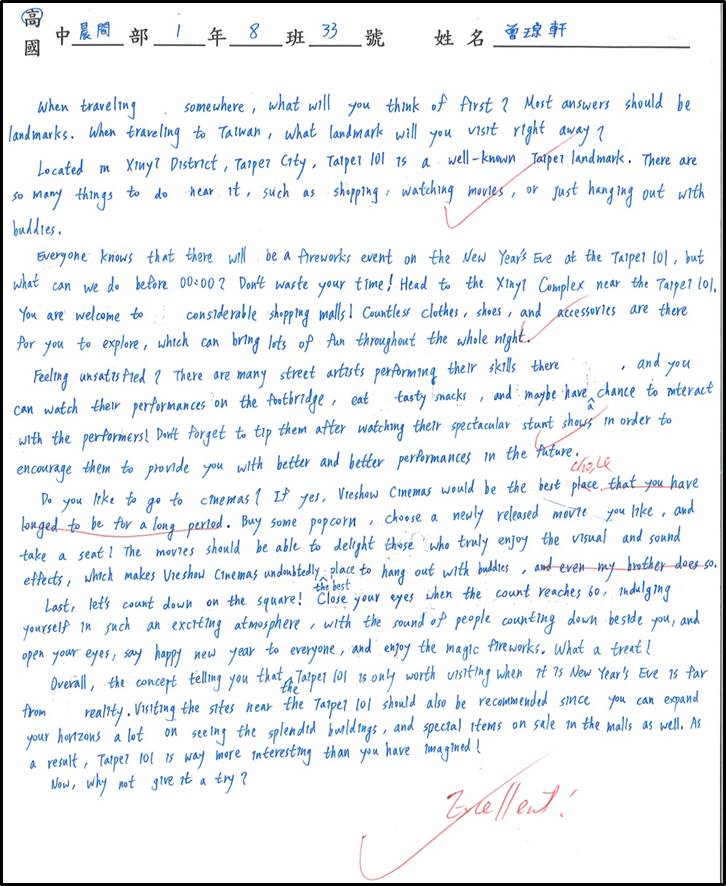 高
國 中 晨間 部 1 年 8 班 33 號 姓 名 曾琼軒
When traveling somewhere, what will you think of first? Most answers should be
landmarks. When traveling to Taiwan, what landmark will you visit right away?
Located in Xinyi District, Taipei City, Taipei 101 is a well-known Taipei landmark. There are
so many things to do near it, such as shopping, watching movies, or just hanging out with
buddies.
Everyone knows that there will be a fireworks event on the New Year's Eve at the Taipei 101, but
what can we do before 00:00? Don't waste your time! Head to the Xinyi Complex near the Taipei 101.
You are welcome to considerable shopping malls! Countless clothes, shoes, and accessories are there
for you to explore, which can bring lots of fun throughout the whole night.
Feeling unsatisfied? There are many street artists performing their skills there , and you
can watch their performances on the footbridge, eat tasty snacks, and maybe have a chance to interact
with the performers! Don't forget to tip them after watching their spectacular stunt shows in order to
encourage them to provide you with better and better performances in the future.
choice
Do you like to go to cinemas? If yes, Vieshow Cinemas would be the best place that you have
longed to be for a long period. Buy some popcorn, choose a newly released movie you like, and
take a seat! The movies should be able to delight those who truly enjoy the visual and sound
effects, which makes Vieshow Cinemas undoubtedly the best place to hang out with buddies, and even my brother does so.
Last, let's count down on the square! Close your eyes when the count reaches 60, indulging
yourself in such an exciting atmosphere, with the sound of people counting down beside you, and
open your eyes, say happy new year to everyone, and enjoy the magic fireworks. What a treat!
Overall, the concept telling you that the Taipei 101 is only worth visiting when it is New Year's Eve is far
from reality. Visiting the sites near the Taipei 101 should also be recommended since you can expand
your horizons a lot on seeing the splendid buildings, and special items on sale in the malls as well. As
a result, Taipei 101 is way more interesting than you have imagined!
Now, why not give it a try?
Excellent!